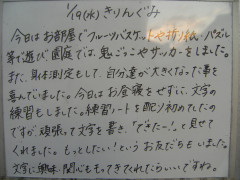 1/19(水)きりんぐみ
今日はお部屋でフルーツバスケットや折り紙、パズル
等で遊び園庭では、鬼ごっこやサッカーをしました。
また、身体測定もして、自分達が大きくなった事を
喜んでいました。今日はお昼寝をせずに、文字の
練習もしました。練習ノートを配り初めてしたの
ですが、頑張って文字を書き、「できたー!」と見せて
くれました。もっとしたい!というお友だちもいました。
文字に興味・関心をもってきてくれたらいいですね。